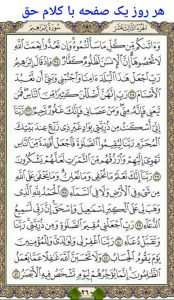 هر روز یک صفحه با کلام حق
الجزء الثالث عشر سورة إبراهيم
وَءَاتَىٰكُم مِّن كُلِّ مَا سَأَلْتُمُوهُ وَإِن تَعُدُّوا نِعْمَتَ اللَّهِ
لَا تُحْصُوهَا إِنَّ الْإِنسَانَ لَظَلُومٌ كَفَّارٌ ٣٤ وَإِذْ قَالَ إِبْرَاهِيمُ
رَبِّ اجْعَلْ هَٰذَا الْبَلَدَ ءَامِنًا وَاجْنُبْنِي وَبَنِيَّ أَن نَّعْبُدَ
الْأَصْنَامَ ٣٥ رَبِّ إِنَّهُنَّ أَضْلَلْنَ كَثِيرًا مِّنَ النَّاسِ فَمَن
تَبِعَنِي فَإِنَّهُ مِنِّي وَمَنْ عَصَانِي فَإِنَّكَ غَفُورٌ رَّحِيمٌ ٣٦ رَّبَّنَا
إِنِّي أَسْكَنتُ مِن ذُرِّيَّتِي بِوَادٍ غَيْرِ ذِي زَرْعٍ عِندَ بَيْتِكَ
الْمُحَرَّمِ رَبَّنَا لِيُقِيمُوا الصَّلَوٰةَ فَاجْعَلْ أَفْئِدَةً مِّنَ النَّاسِ
تَهْوِي إِلَيْهِمْ وَارْزُقْهُم مِّنَ الثَّمَرَاتِ لَعَلَّهُمْ يَشْكُرُونَ ٣٧
رَبَّنَا إِنَّكَ تَعْلَمُ مَا نُخْفِي وَمَا نُعْلِنُ وَمَا يَخْفَىٰ عَلَى اللَّهِ
مِن شَيْءٍ فِي الْأَرْضِ وَلَا فِي السَّمَاءِ ٣٨ الْحَمْدُ لِلَّهِ الَّذِي
وَهَبَ لِي عَلَى الْكِبَرِ إِسْمَاعِيلَ وَإِسْحَاقَ إِنَّ رَبِّي لَسَمِيعُ
الدُّعَاءِ ٣٩ رَبِّ اجْعَلْنِي مُقِيمَ الصَّلَوٰةِ وَمِن ذُرِّيَّتِي رَبَّنَا
وَتَقَبَّلْ دُعَاءِ ٤٠ رَبَّنَا اغْفِرْ لِي وَلِوَالِدَيَّ وَلِلْمُؤْمِنِينَ
يَوْمَ يَقُومُ الْحِسَابُ ٤١ وَلَا تَحْسَبَنَّ اللَّهَ غَافِلًا عَمَّا يَعْمَلُ
الظَّالِمُونَ إِنَّمَا يُؤَخِّرُهُمْ لِيَوْمٍ تَشْخَصُ فِيهِ الْأَبْصَارُ ٤٢
٢٦٠